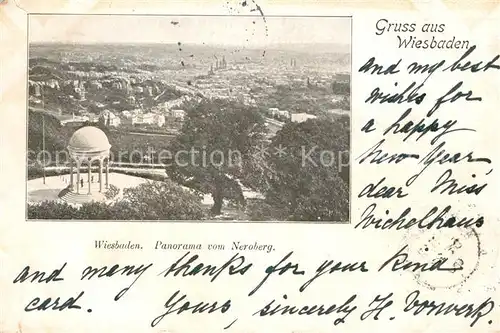 Gruss aus
Wiesbaden
and my best
wishes for
a happy
new Year,
dear Miss
Wichelhaus
Wiesbaden. Panorama vom Neroberg.
and many thanks for your kind
card. Yours, sincerely H. Vorwerk.
akpool.de